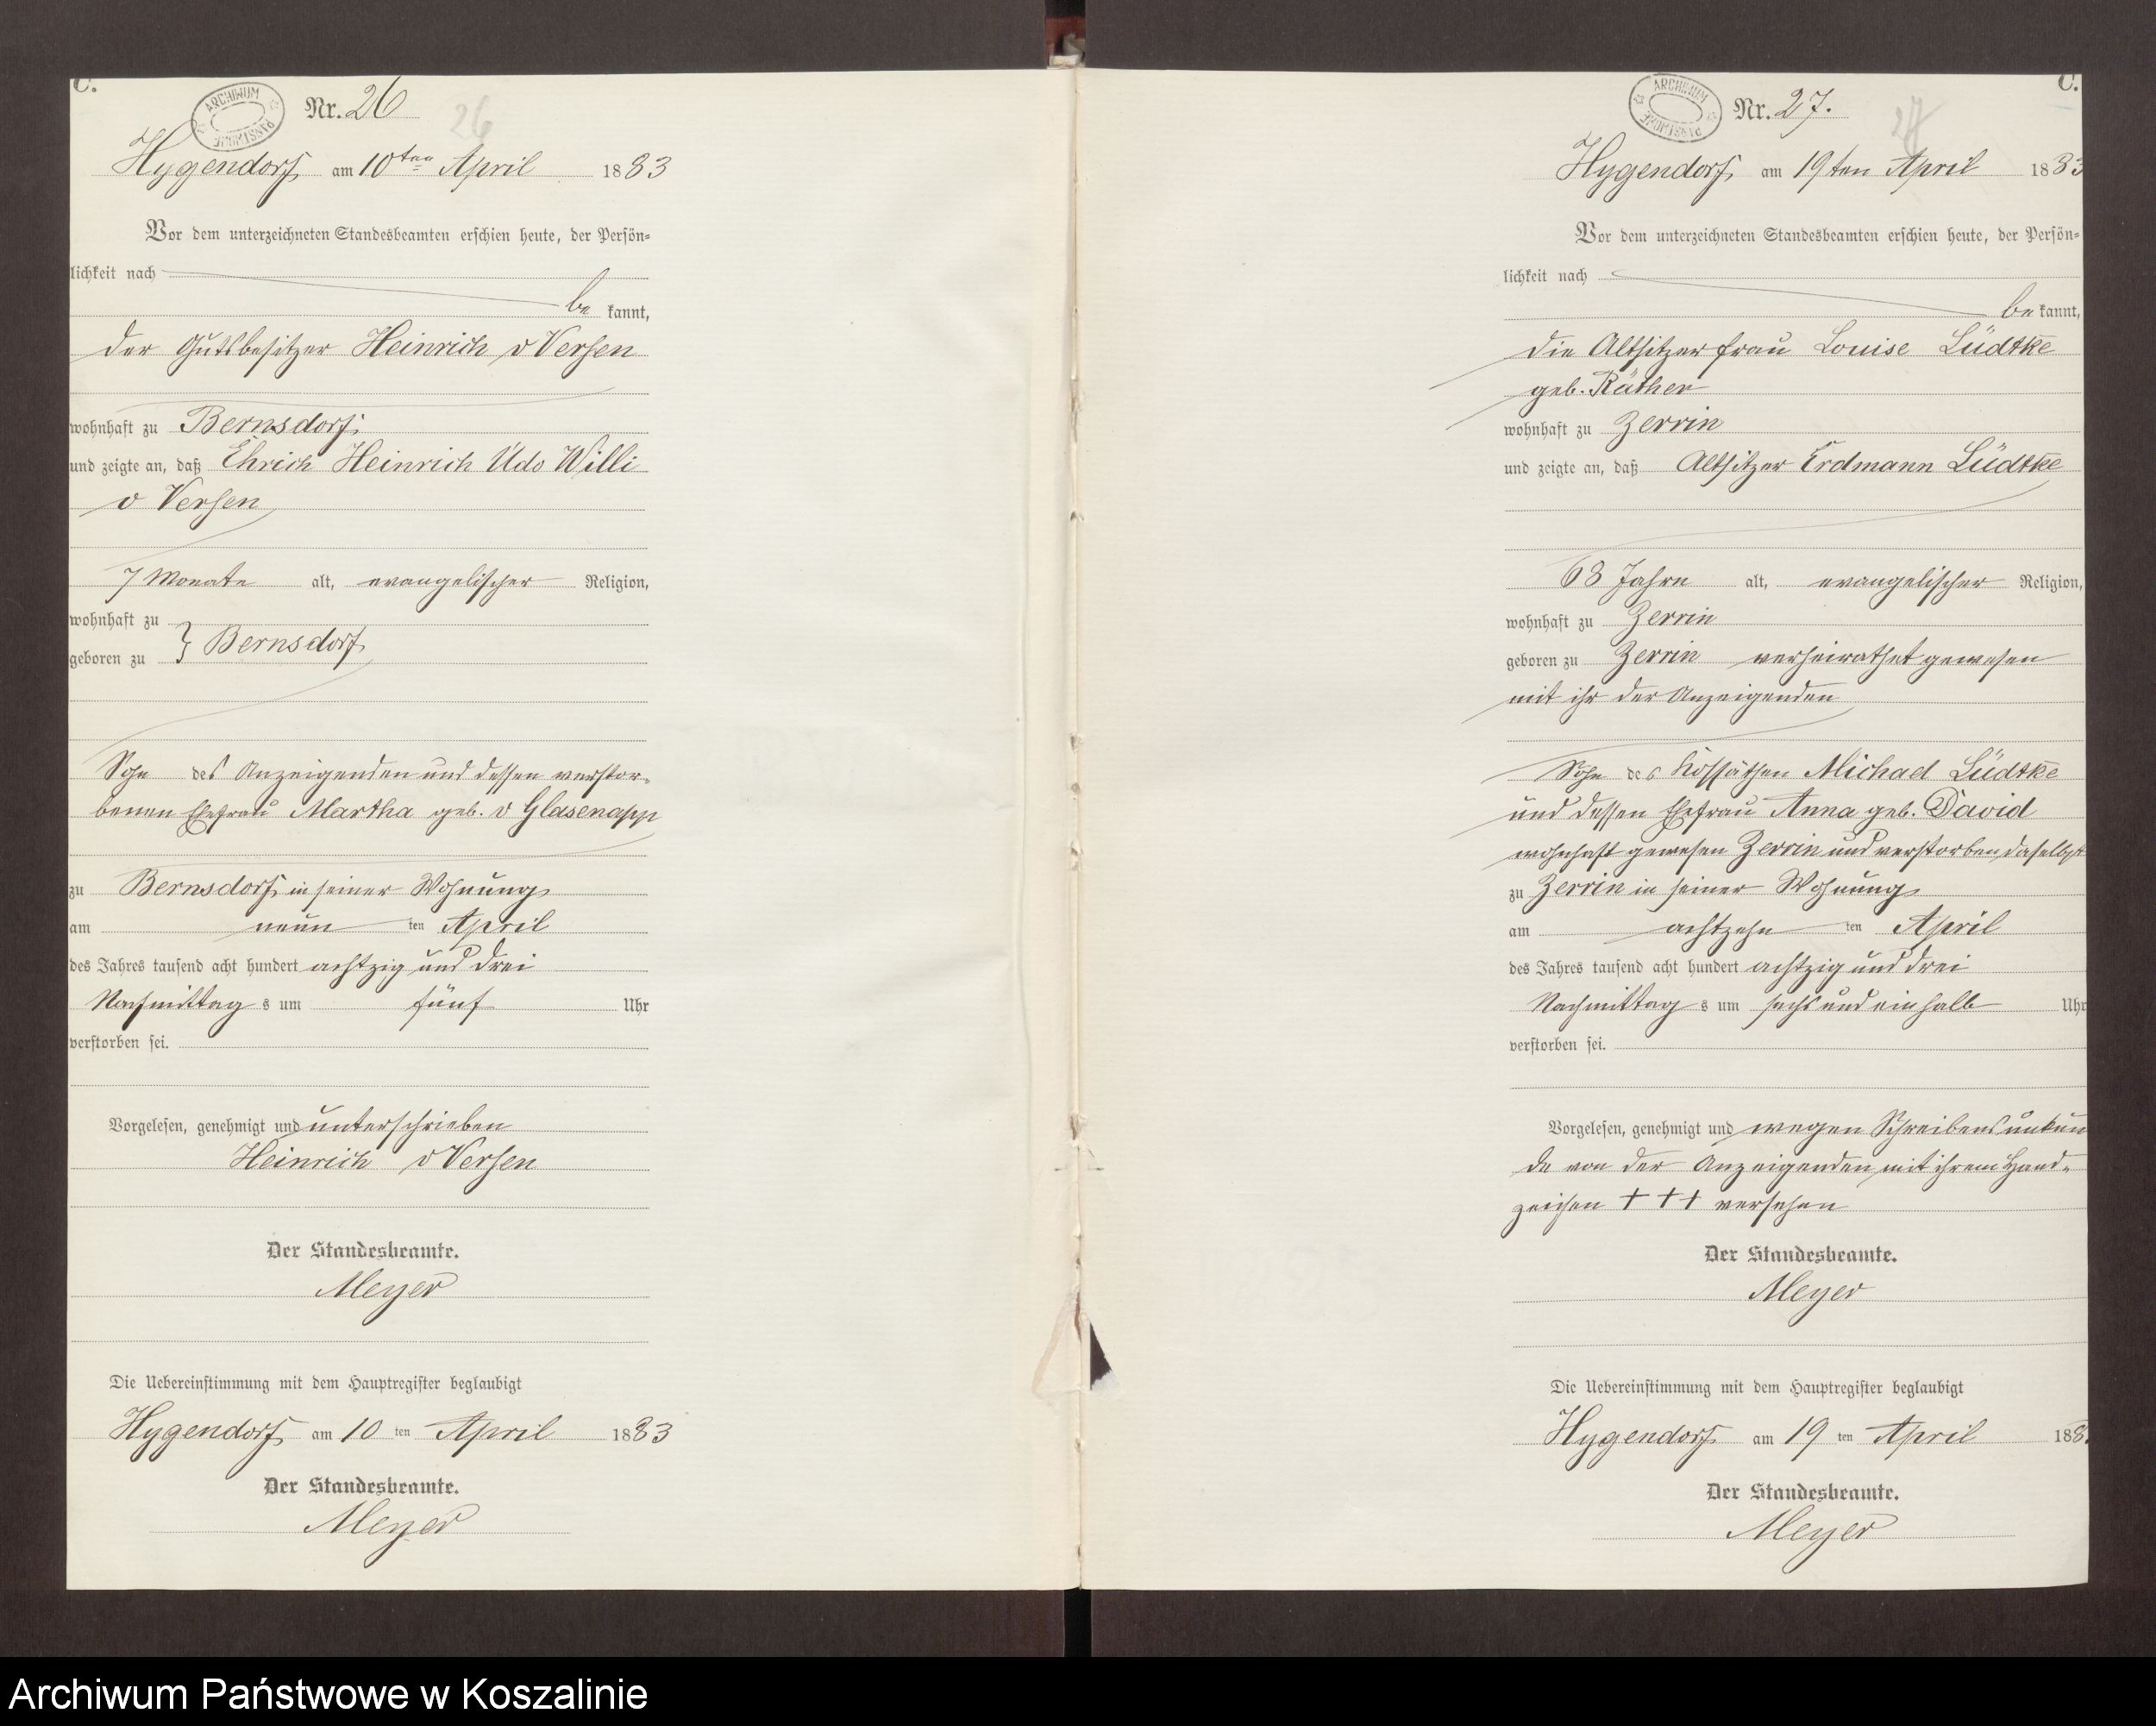 C.
ARCHIWUM PAŃSTWOWE
Nr. 26
26
Hygendorf, am 10ten April 1883
Vor dem unterzeichneten Standesbeamten erschien heute, der Persön-
lichkeit nach
be kannt,
der Gutsbesitzer Heinrich v Versen
wohnhaft zu Bernsdorf,
und zeigte an, daß Ehrich Heinrich Udo Willi
v Versen
7 Monate alt, evangelischer Religion,
wohnhaft zu
geboren zu } Bernsdorf
Sohn des Anzeigenden und dessen verstor-
benen Ehefrau Martha geb. v Glasenapp
zu Bernsdorf, in seiner Wohnung,
am neun ten April
des Jahres tausend acht hundert achtzig und drei
Nachmittag s um fünf Uhr
verstorben sei.
Vorgelesen, genehmigt und unterschrieben
Heinrich v Versen
Der Standesbeamte.
Meyer
Die Uebereinstimmung mit dem Hauptregister beglaubigt
Hygendorf, am 10 ten April 1883
Der Standesbeamte.
Meyer
C.
ARCHIWUM PAŃSTWOWE
Nr. 27.
27
Hygendorf, am 19ten April 1883
Vor dem unterzeichneten Standesbeamten erschien heute, der Persön-
lichkeit nach
be kannt,
die Altsitzerfrau Louise Lüdtke
geb. Räther
wohnhaft zu Zerrin
und zeigte an, daß Altsitzer Erdmann Lüdtke
68 Jahre alt, evangelischer Religion,
wohnhaft zu Zerrin
geboren zu Zerrin verheirathet gewesen
mit ihr der Anzeigenden
Sohn des Kossäthen Michael Lüdtke
und dessen Ehefrau Anna geb. David
wohnhaft gewesen Zerrin und verstorben daselbst
zu Zerrin in seiner Wohnung,
am achtzehn ten April
des Jahres tausend acht hundert achtzig und drei
Nachmittag s um sechs und ein halb Uhr
verstorben sei.
Vorgelesen, genehmigt und wegen Schreibensunkun
de von der Anzeigenden mit ihrem Hand-
zeichen + + + versehen
Der Standesbeamte.
Meyer
Die Uebereinstimmung mit dem Hauptregister beglaubigt
Hygendorf, am 19 ten April 188
Der Standesbeamte.
Meyer
Archiwum Państwowe w Koszalinie